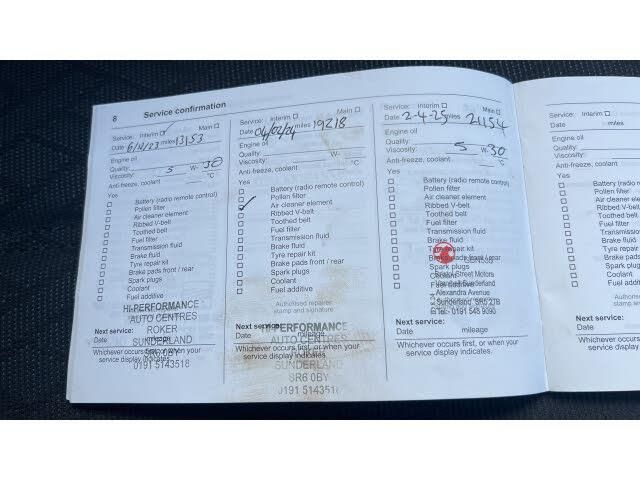 8 Service confirmation
Service: Interim Main
Date 6/11/23 miles 13153
Engine oil
Quality:
Viscosity: 5 W- 30
Anti-freeze, coolant °C
Yes
Battery (radio remote control)
Pollen filter
Air cleaner element
Ribbed V-belt
Toothed belt
Fuel filter
Transmission fluid
Brake fluid
Tyre repair kit
Brake pads front / rear
Spark plugs
Coolant
Fuel additive
HI-PERFORMANCE
AUTO CENTRES
ROKER
SUNDERLAND
SR6 0BY
0191 5143518
Next service:
Date mileage
Whichever occurs first, or when your
service display indicates.
Service: Interim Main
Date 04/02/24 miles 19218
Engine oil
Quality:
Viscosity: W-
Anti-freeze, coolant °C
Yes
Battery (radio remote control)
Pollen filter
Air cleaner element
Ribbed V-belt
Toothed belt
Fuel filter
Transmission fluid
Brake fluid
Tyre repair kit
Brake pads front / rear
Spark plugs
Coolant
Fuel additive
Authorised repairer
stamp and signature
HI-PERFORMANCE
AUTO CENTRES
SUNDERLAND
SR6 0BY
0191 5143518
Next service:
Date mileage
Whichever occurs first, or when your
service display indicates.
Service: Interim Main
Date 2-4-25 miles 21154
Engine oil
Quality:
Viscosity: 5 W- 30
Anti-freeze, coolant °C
Yes
Battery (radio remote control)
Pollen filter
Air cleaner element
Ribbed V-belt
Toothed belt
Fuel filter
Transmission fluid
Brake fluid
Tyre repair kit
Brake pads front / rear
Spark plugs
Coolant
Fuel additive
Bristol Street Motors
Vauxhall Sunderland
Alexandra Avenue
Sunderland, SR5 2TB
Tel:- 0191 548 9090
Next service:
Date mileage
Whichever occurs first, or when your
service display indicates.
Service: Interim
Date miles
Engine oil
Quality:
Viscosity:
Anti-freeze, coolant
Yes
Battery (radio
Pollen filter
Air cleaner
Ribbed V-belt
Toothed belt
Fuel filter
Transmission
Brake fluid
Tyre repair
Brake pads
Spark plugs
Coolant
Fuel additive
Next service:
Date
Whichever occurs
service display